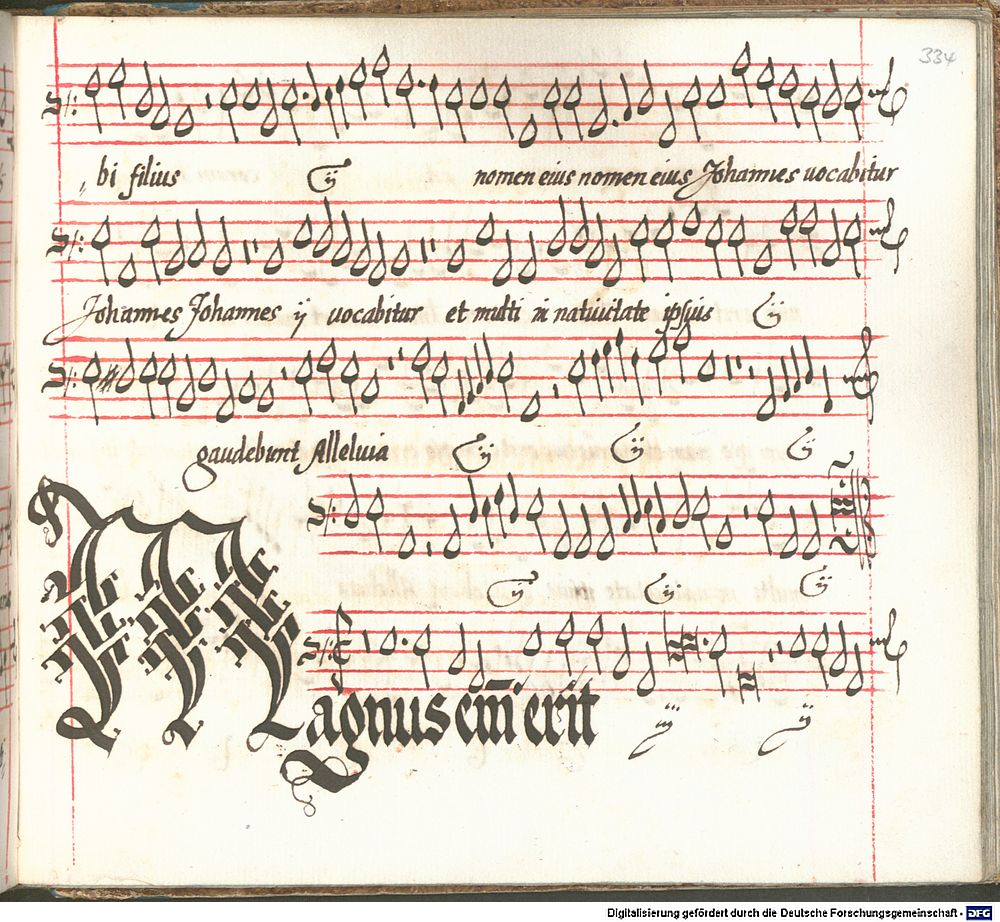 334
bi filius ij nomen eius nomen eius Johannes uocabitur
Johannes Johannes ij uocabitur et multi in natiuitate ipsius ij
gaudebunt Alleluia ij ij ij
ij ij ij
Magnus em̄ erit iij ij
Digitalisierung gefördert durch die Deutsche Forschungsgemeinschaft - DFG